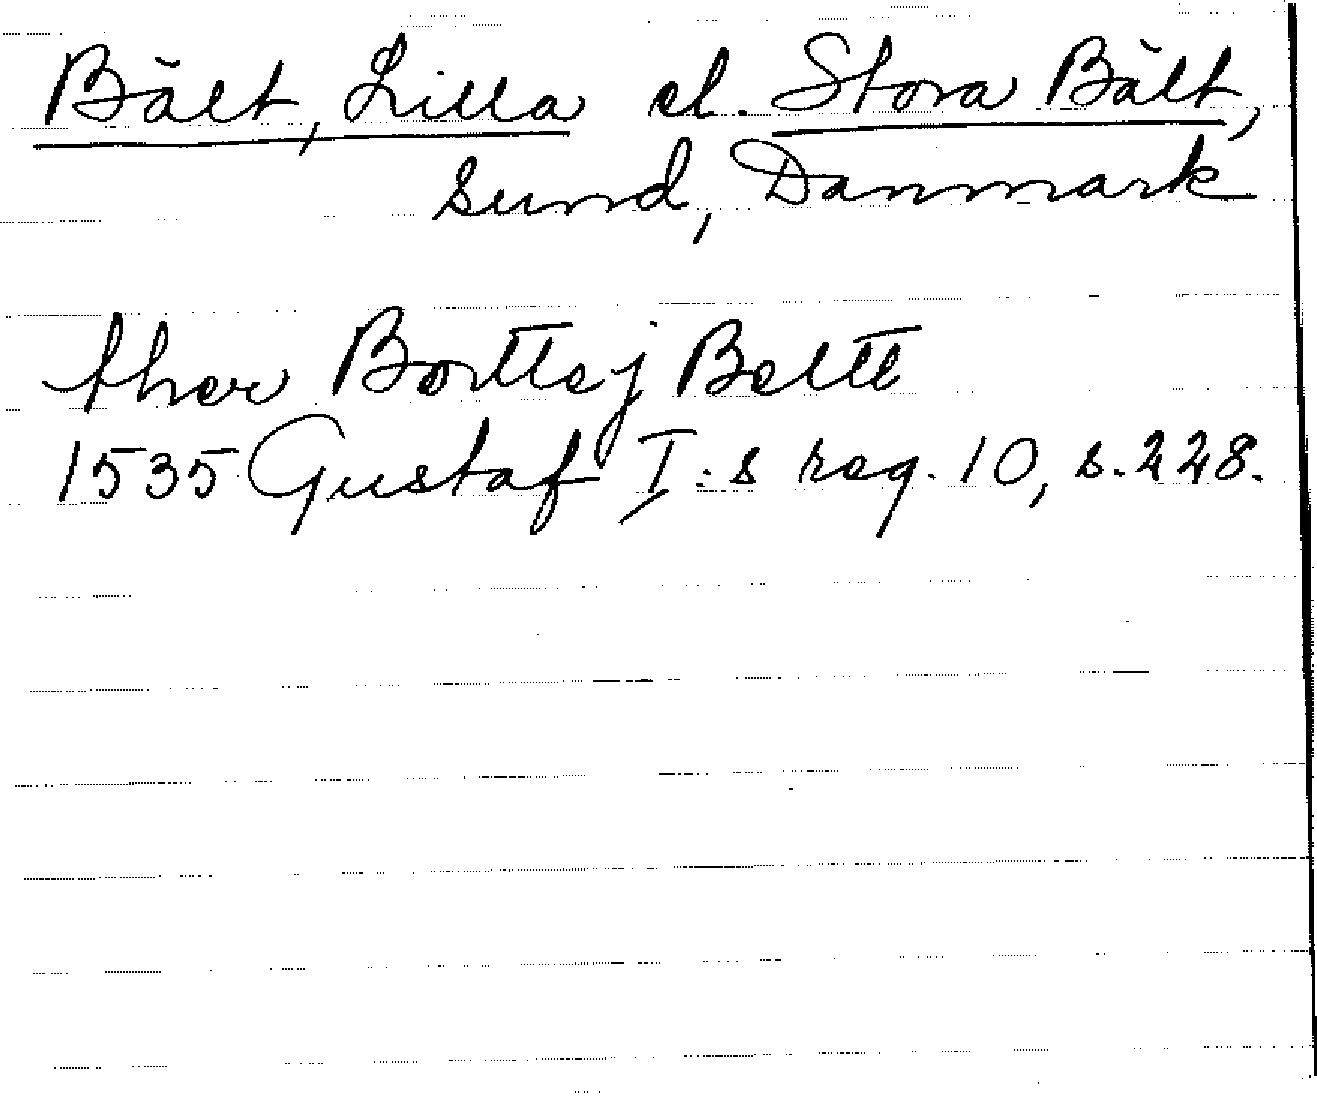 Bält, Lilla el. Stora Bält,
sund, Danmark
ther Borttej Beltt
1535 Gustaf I:s reg. 10, s. 228.